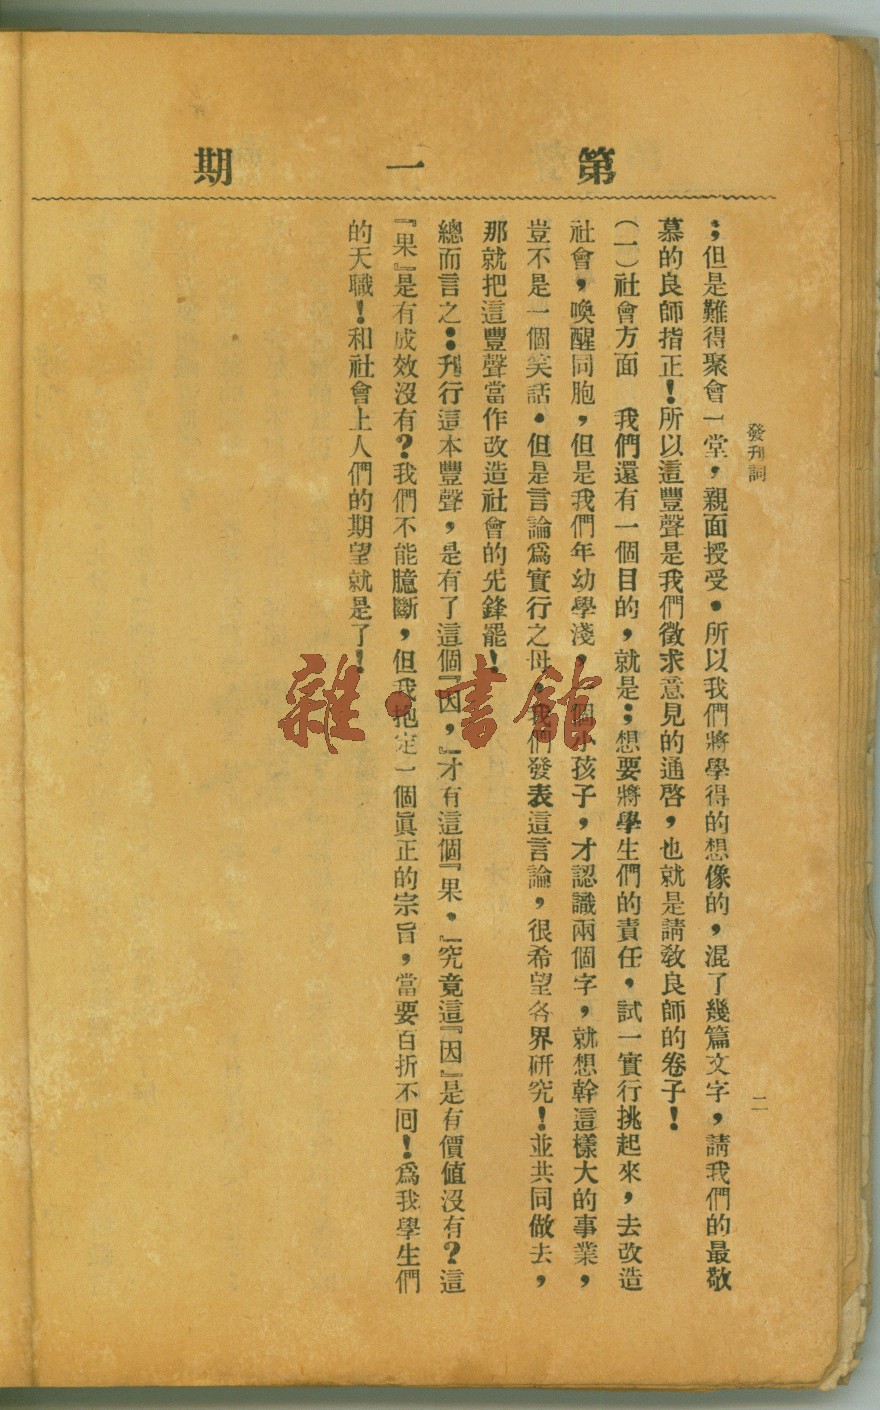 第一期
發刊詞
二
；但是難得聚會一堂，親面授受．所以我們將學得的想像的，混了幾篇文字，請我們的最敬
慕的良師指正！所以這豐聲是我們徵求意見的通啓，也就是請敎良師的卷子！
（二）社會方面　我們還有一個目的，就是；想要將學生們的責任，試一實行挑起來，去改造
社會，喚醒同胞，但是我們年幼學淺，個小孩子，才認識兩個字，就想幹這樣大的事業，
豈不是一個笑話．但是言論爲實行之母，我們發表這言論，很希望各界硏究！並共同做去，
那就把這豐聲當作改造社會的先鋒罷！
總而言之：刋行這本豐聲，是有了這個『因，』才有這個『果．』究竟這『因』是有價值沒有？這
『果』是有成效沒有？我們不能臆斷，但我抱定一個眞正的宗旨，當要百折不囘！爲我學生們
的天職！和社會上人們的期望就是了！
雜·書館